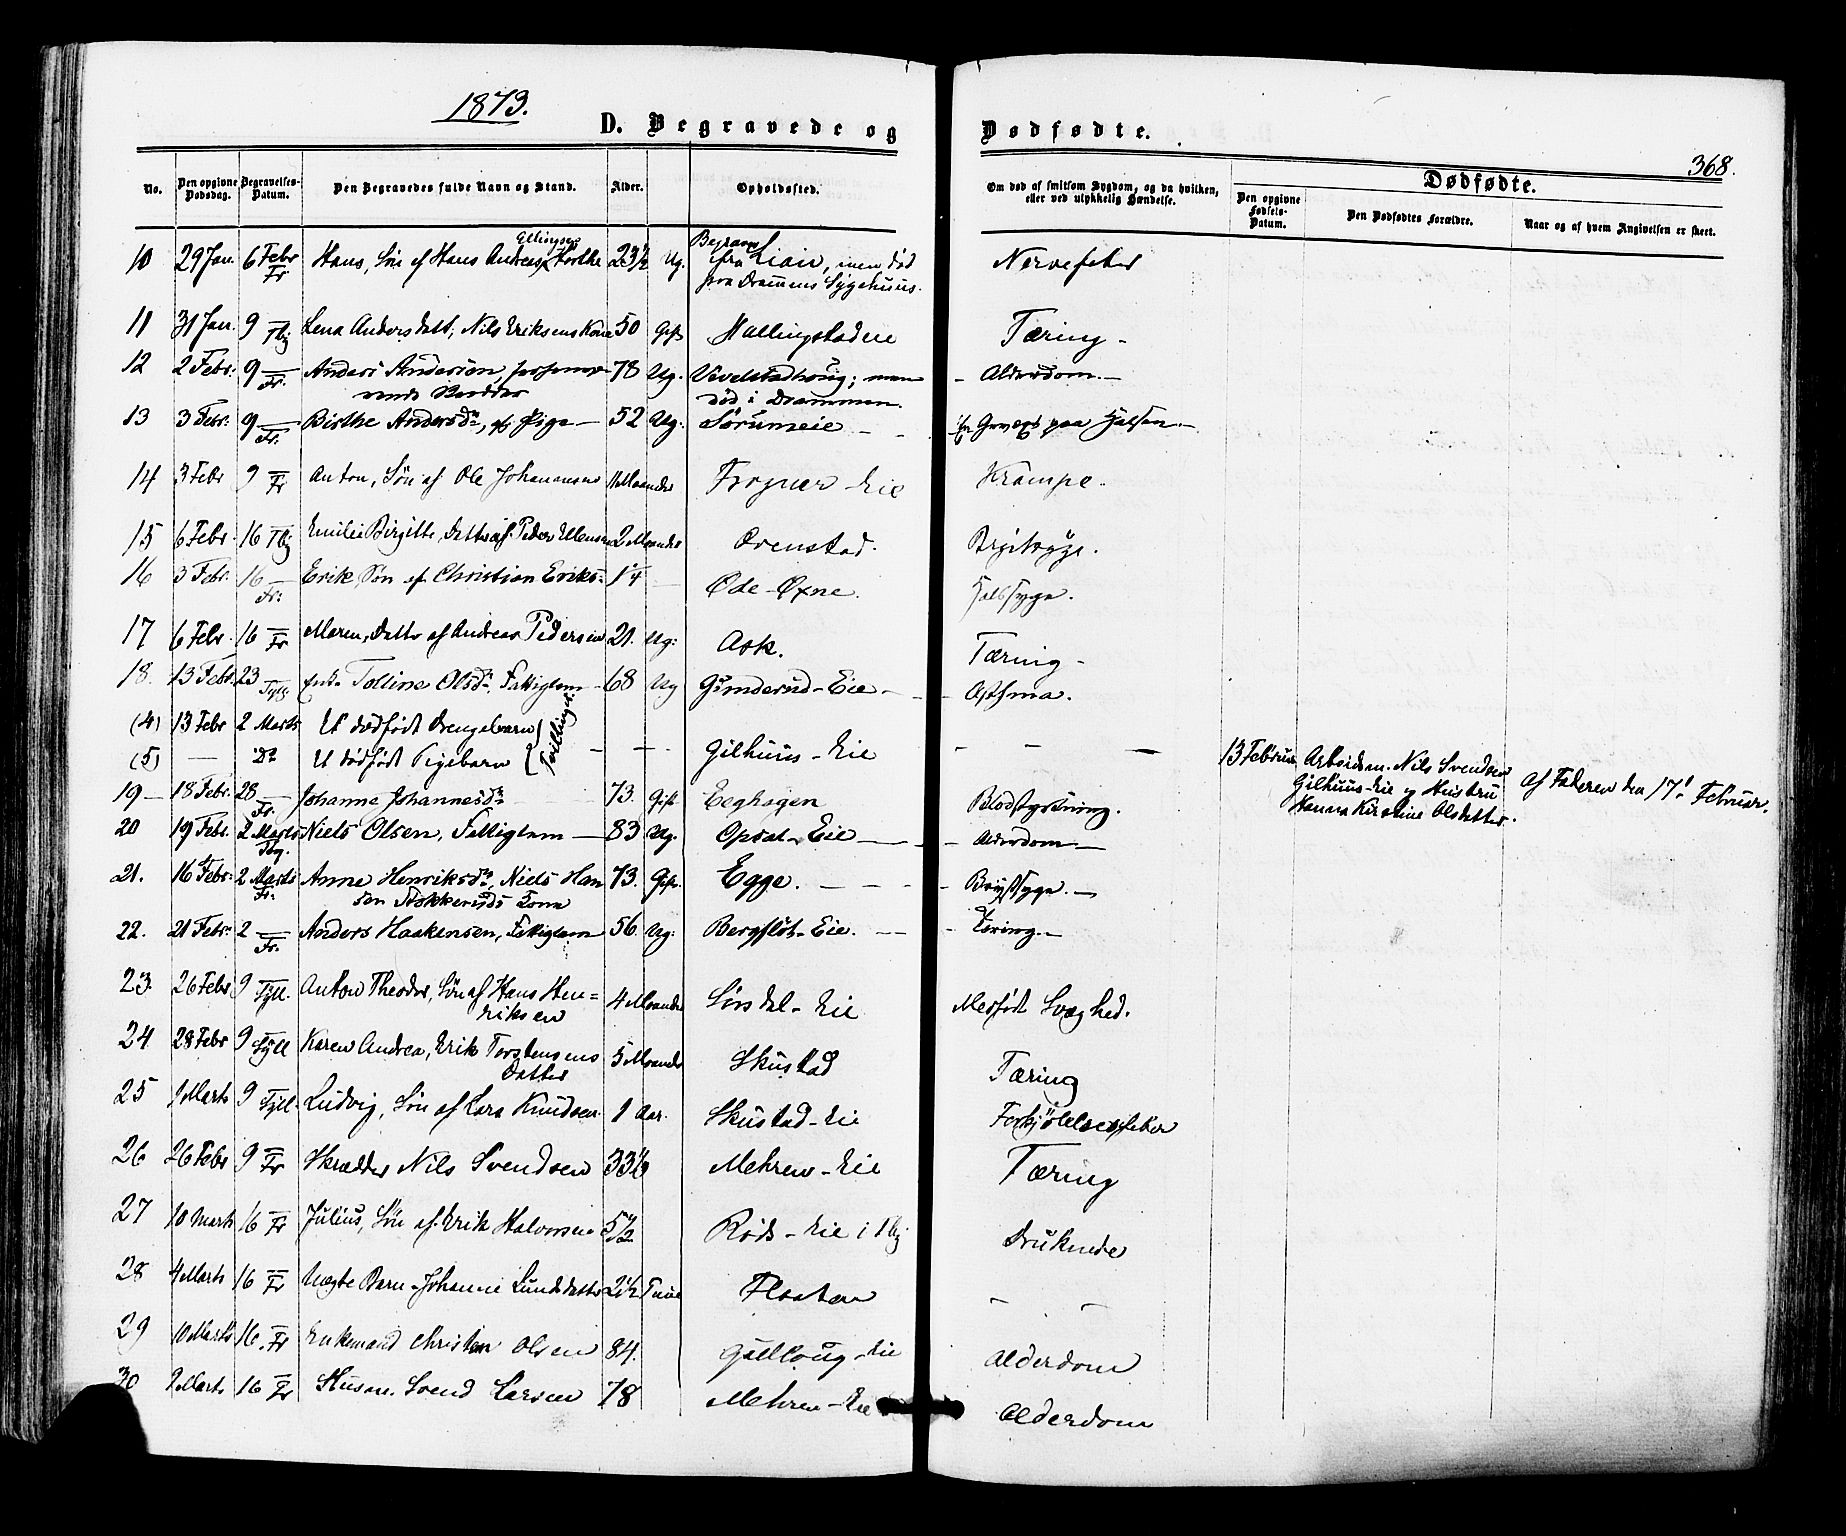 1873.
D. Begravede og Dødfødte.
368.
No. Den opgivne Dødsdag. Begravelses-Datum. Den Begravedes fulde Navn og Stand. Alder. Opholdssted. Om død af smitsom Sygdom, og da hvilken, eller ved ulykkelig Hændelse. Dødfødte.
Den opgivne Fødsels-Datum. Den Dødfødtes Forældre. Naar og af hvem Angivelsen er skeet.
10 29 Jan. 6 Febr Fr Hans, Søn af Hans Andreas 23½ Ug. fra Lian, men død Nervefeber
paa Drammens Sygehuus.
11 31 Jan. 9 — Tbg Lena Andersdatt, Nils Eriksens Kone 50 Gift Hallingstadeie Tæring -
12 2 Febr. 9 — Fr. Anders Andersen, 78 Ug. Vevelstadhoug; men - Alderdom. -
død i Drammen.
13 3 Febr. 9 — Fr. Birthe Andersdr, Pige - 52 Ug. Sørumeie - - paa Halsen. -
14 3 Febr 9 — Fr Anton, Søn af Ole Johannesen 11 Maaneder Frogner Eie Krampe.
15 6 Febr. 16 — Tbg Emilie Birgitte, Datter af Peder Ellensen 2 Maaneder Ovenstad. Brystsyge.
16 3 Febr. 16 — Fr. Erik Søn af Christian Eriks: 1¼ — Øde-Øxne. Halssyge.
17 6 Febr. 16 — Fr Maren, Datter af Andreas Pedersen 21. Ug: Ask. Tæring -
18. 13 Febr. 23 — Tolline Olsdr, Fattiglem - 68 Ug Gunderud-Eie - - Asthma.
(4) 13 Febr 2 Marts Et dødfødt Drengebarn
(5) — Do Et dødfødt Pigebarn } Tvillinger - - Gilhuus-Eie - - - 13 Februar Arbeidsm. Nils Svendsen
Gilhuus-Eie og Hustru
Hanna Kirstine Olsdatter. Af Faderen den 17de Februar.
19 - 18 Febr. 28 — Fr. Johanne Johannesdr 73. Gift Eeghagen Blodstyrtning.
20 19 Febr. 2 Marts Tbg. Niels Olsen, Fattiglem — 83 Ug. Opsal-Eie - - - Alderdom. -
21. 16 Febr. 2 Marts Fr. Anne Henriksdr, Niels Han 73. Gift. Egge. - - - Brystsyge. -
sen Stokkeruds Kone
22. 21 Febr. 2 — Fr. Anders Haakensen, Fattiglem 56 Ug. Bergflöt-Eie. - - Tæring. -
23. 26 Febr 9 — Tyll. Anton Theodor, Søn af Hans Hen= 4 Maaneder Sørsdal-Eie Medfødt Svaghed.
riksen
24 28 Febr 9 — Tyll Karen Andrea, Erik Torstensens 5 Maaneder Skustad Tæring
Datter
25 1 Marts 9 — Tyll. Ludvig, Søn af Lars Knudsen. 1 Aar. Skustad-Eie Forkjölelsesfeber
26 26 Febr 9 — Fr Skrædder Nils Svendsen 33½ Mehren-Eie Tæring
27 10 Marts 16 — Fr Julius, Søn af Erik Halvorsen 5½ Röds-Eie i Tbg. Druknede
28 4 Marts 16 — Fr Uægte Barn Johanne 2½ Flaaten -
29 10 Marts 16. — Fr Enkemand Christen Olsen 84. Gulloug-Eie Alderdom
30 9 Marts 16 — Fr Husm. Svend Larsen 78 Mehren-Eie Alderdom